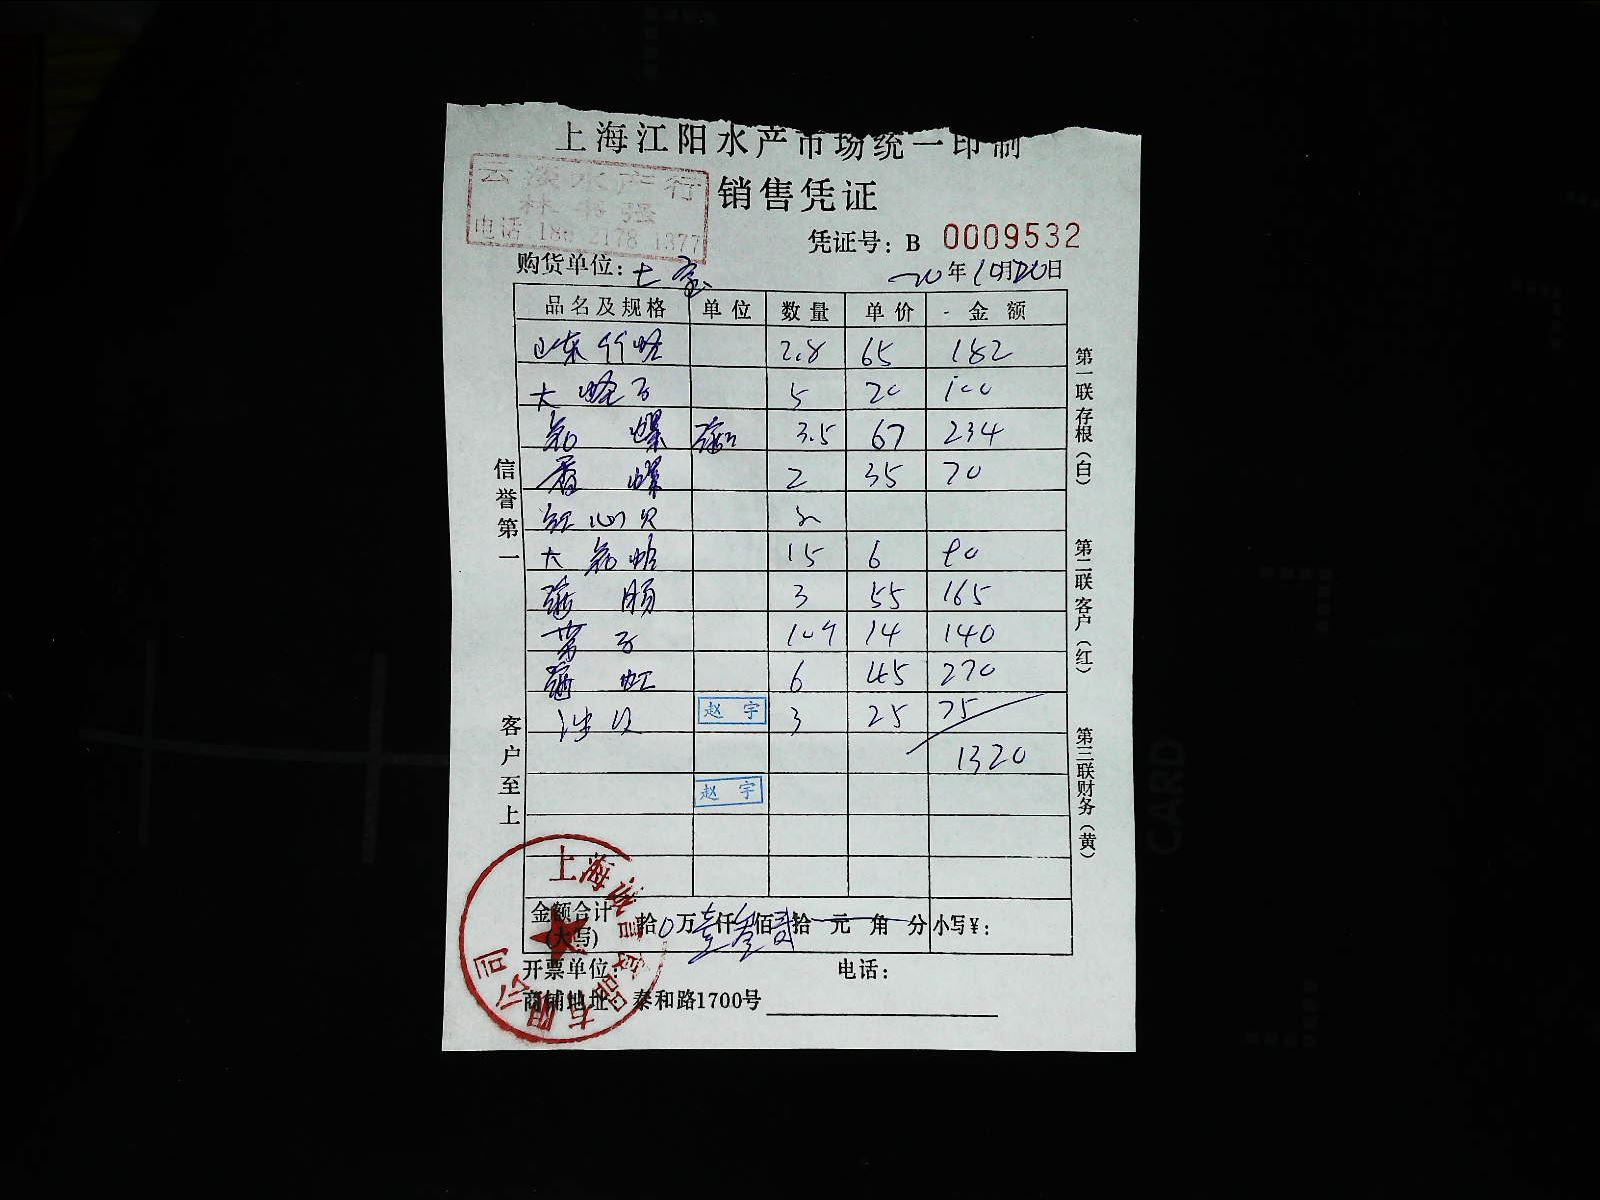 上海江阳水产市场统一印制
云淡水产行
电话 186 2178 1377
销售凭证
凭证号：B 0009532
购货单位：七宝
20年10月20日
品名及规格 单位 数量 单价 金额
山东竹蛏 2.8 65 182
大蛏子 5 20 100
3.5 67 234
香螺 2 35 70
红心贝
大 15 6 90
肠 3 55 165
14 140
6 45 270
赵宇 3 25 75
1320
赵宇
金额合计(大写) 拾0万壹仟叁佰贰拾元角分 小写¥：
开票单位： 电话：
商铺地址：泰和路1700号
信誉第一
客户至上
第一联存根（白）
第二联客户（红）
第三联财务（黄）
上海 食品有限公司
CARD